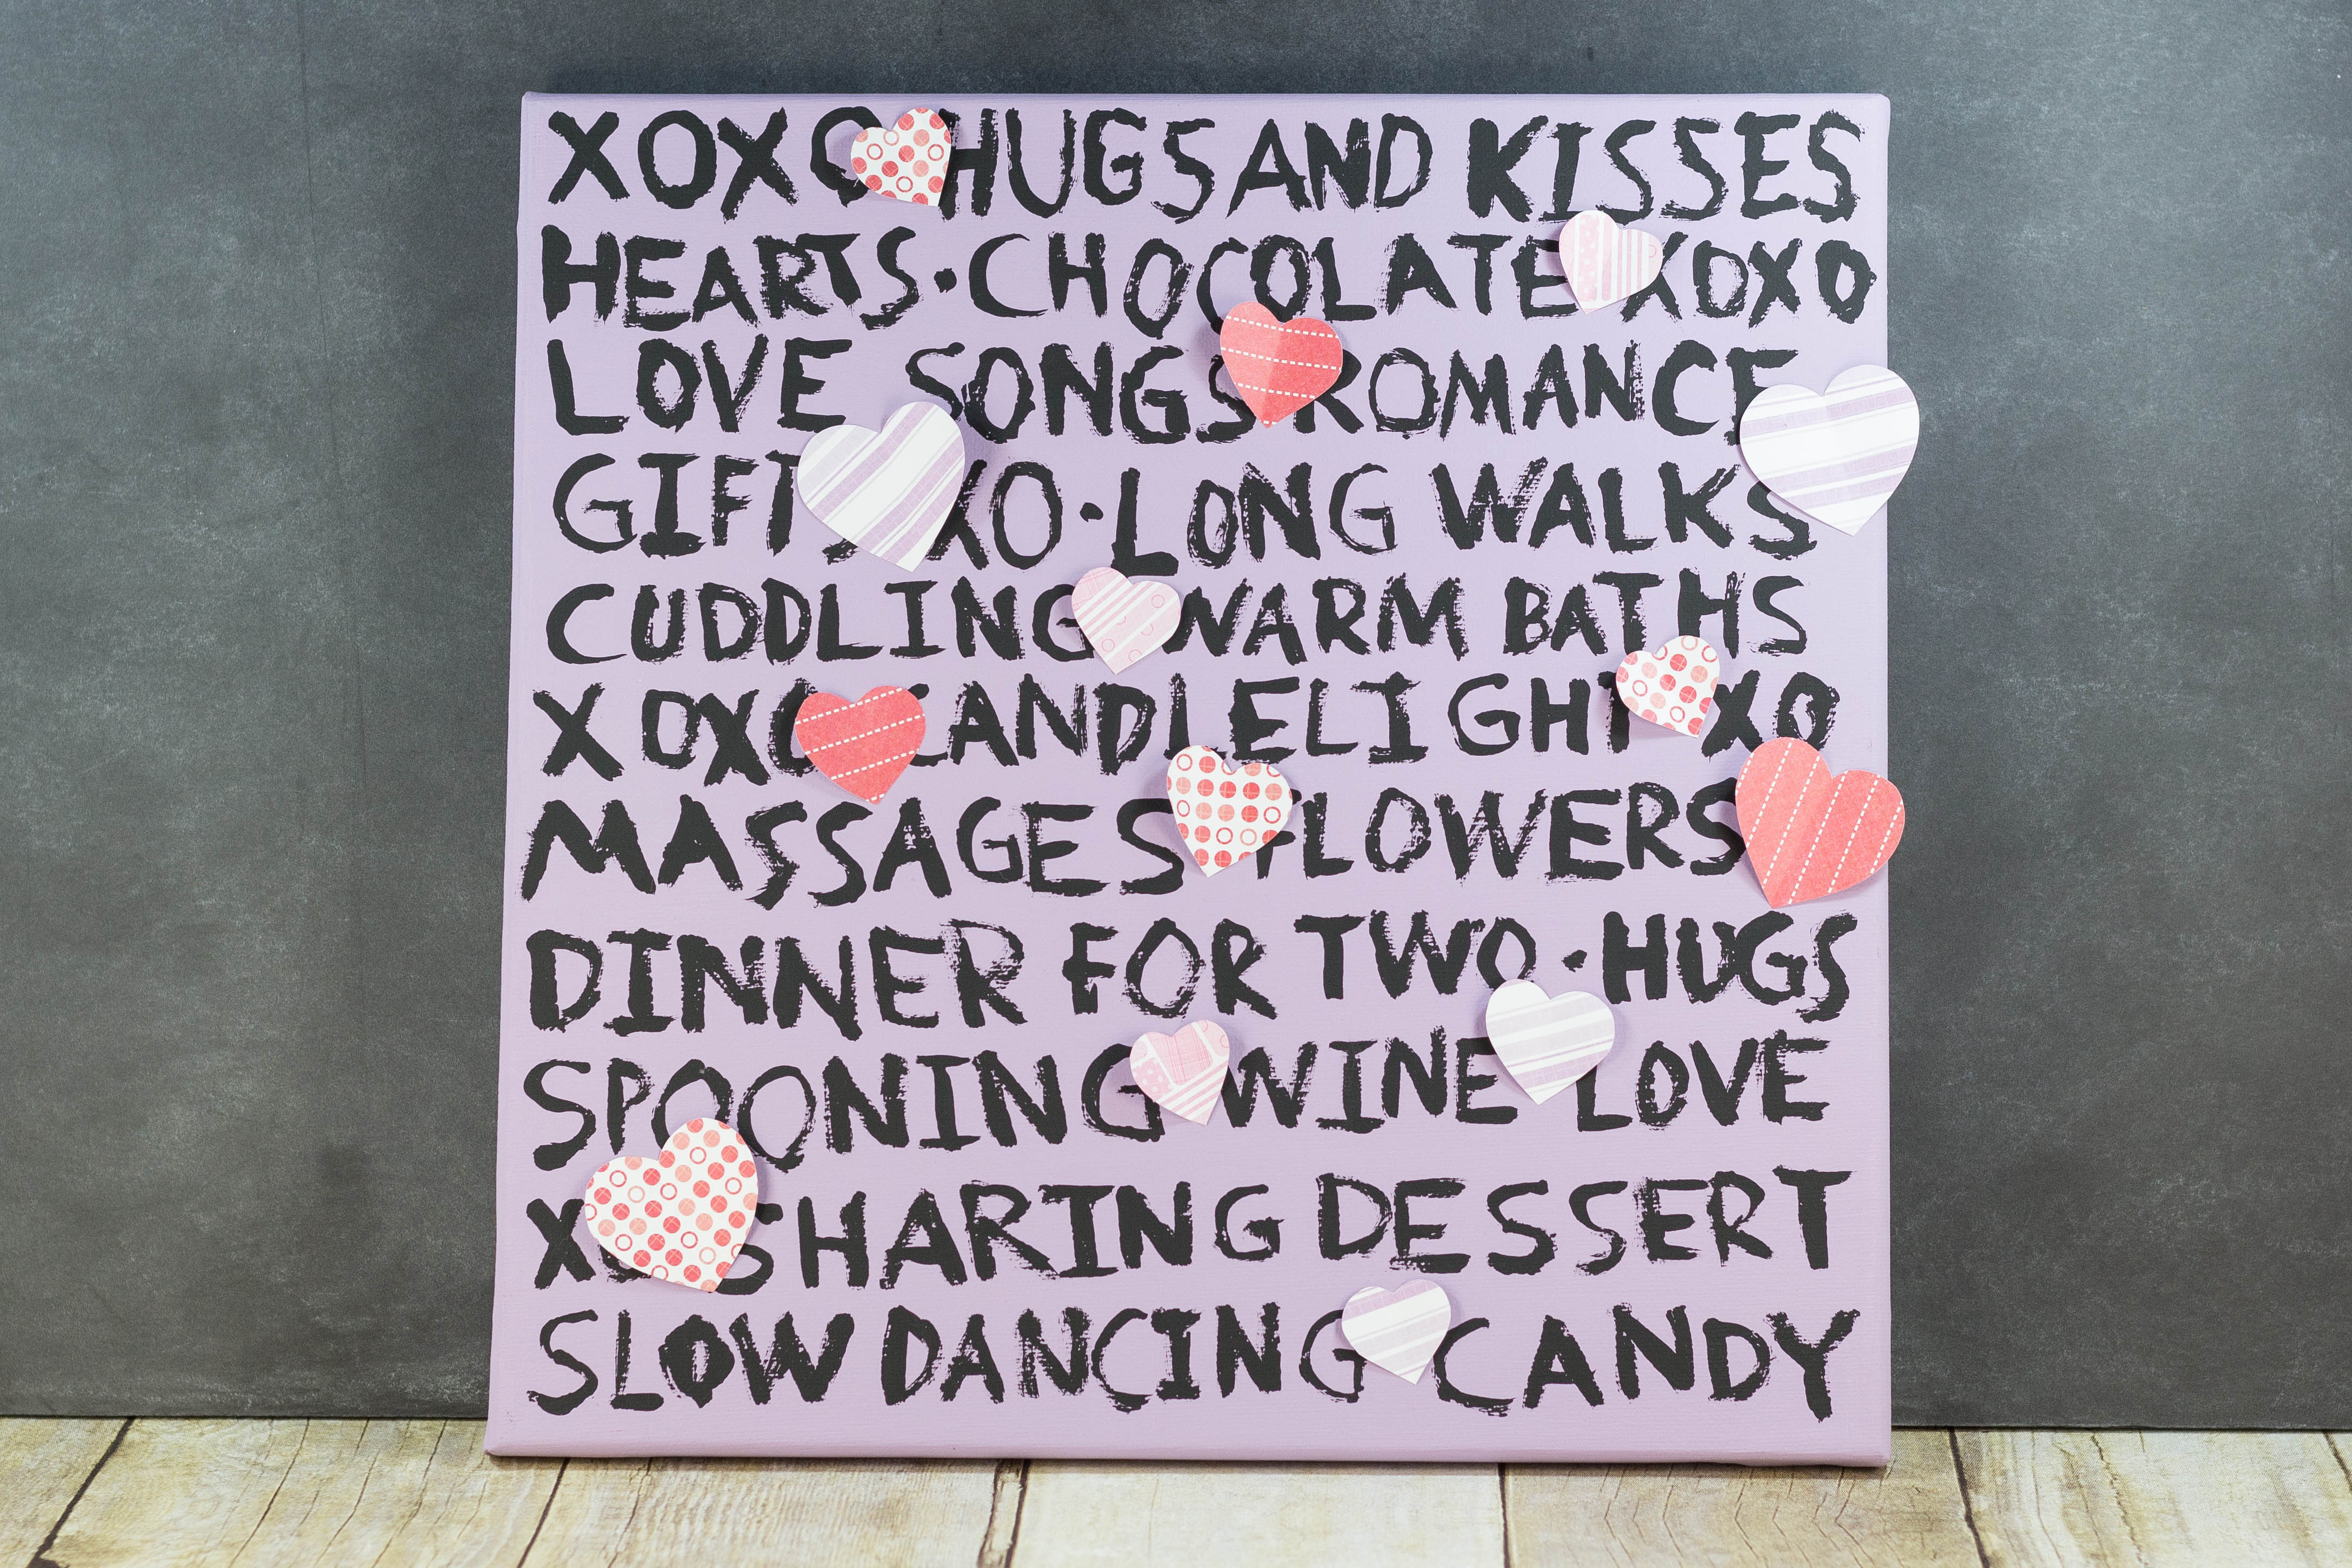 XOXO HUGS AND KISSES
HEARTS·CHOCOLATE XOXO
LOVE SONGS ROMANCE
GIFTS XO·LONG WALKS
CUDDLING WARM BATHS
XOXO CANDLELIGHT XO
MASSAGES FLOWERS
DINNER FOR TWO·HUGS
SPOONING WINE LOVE
XO SHARING DESSERT
SLOW DANCING CANDY